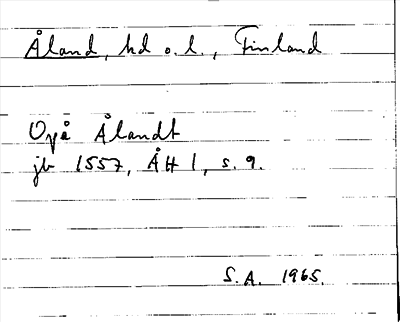 Åland, hd o. l., Finland
Opå Ålandt
jb 1557, ÅH 1, s. 9.
S.A. 1965.